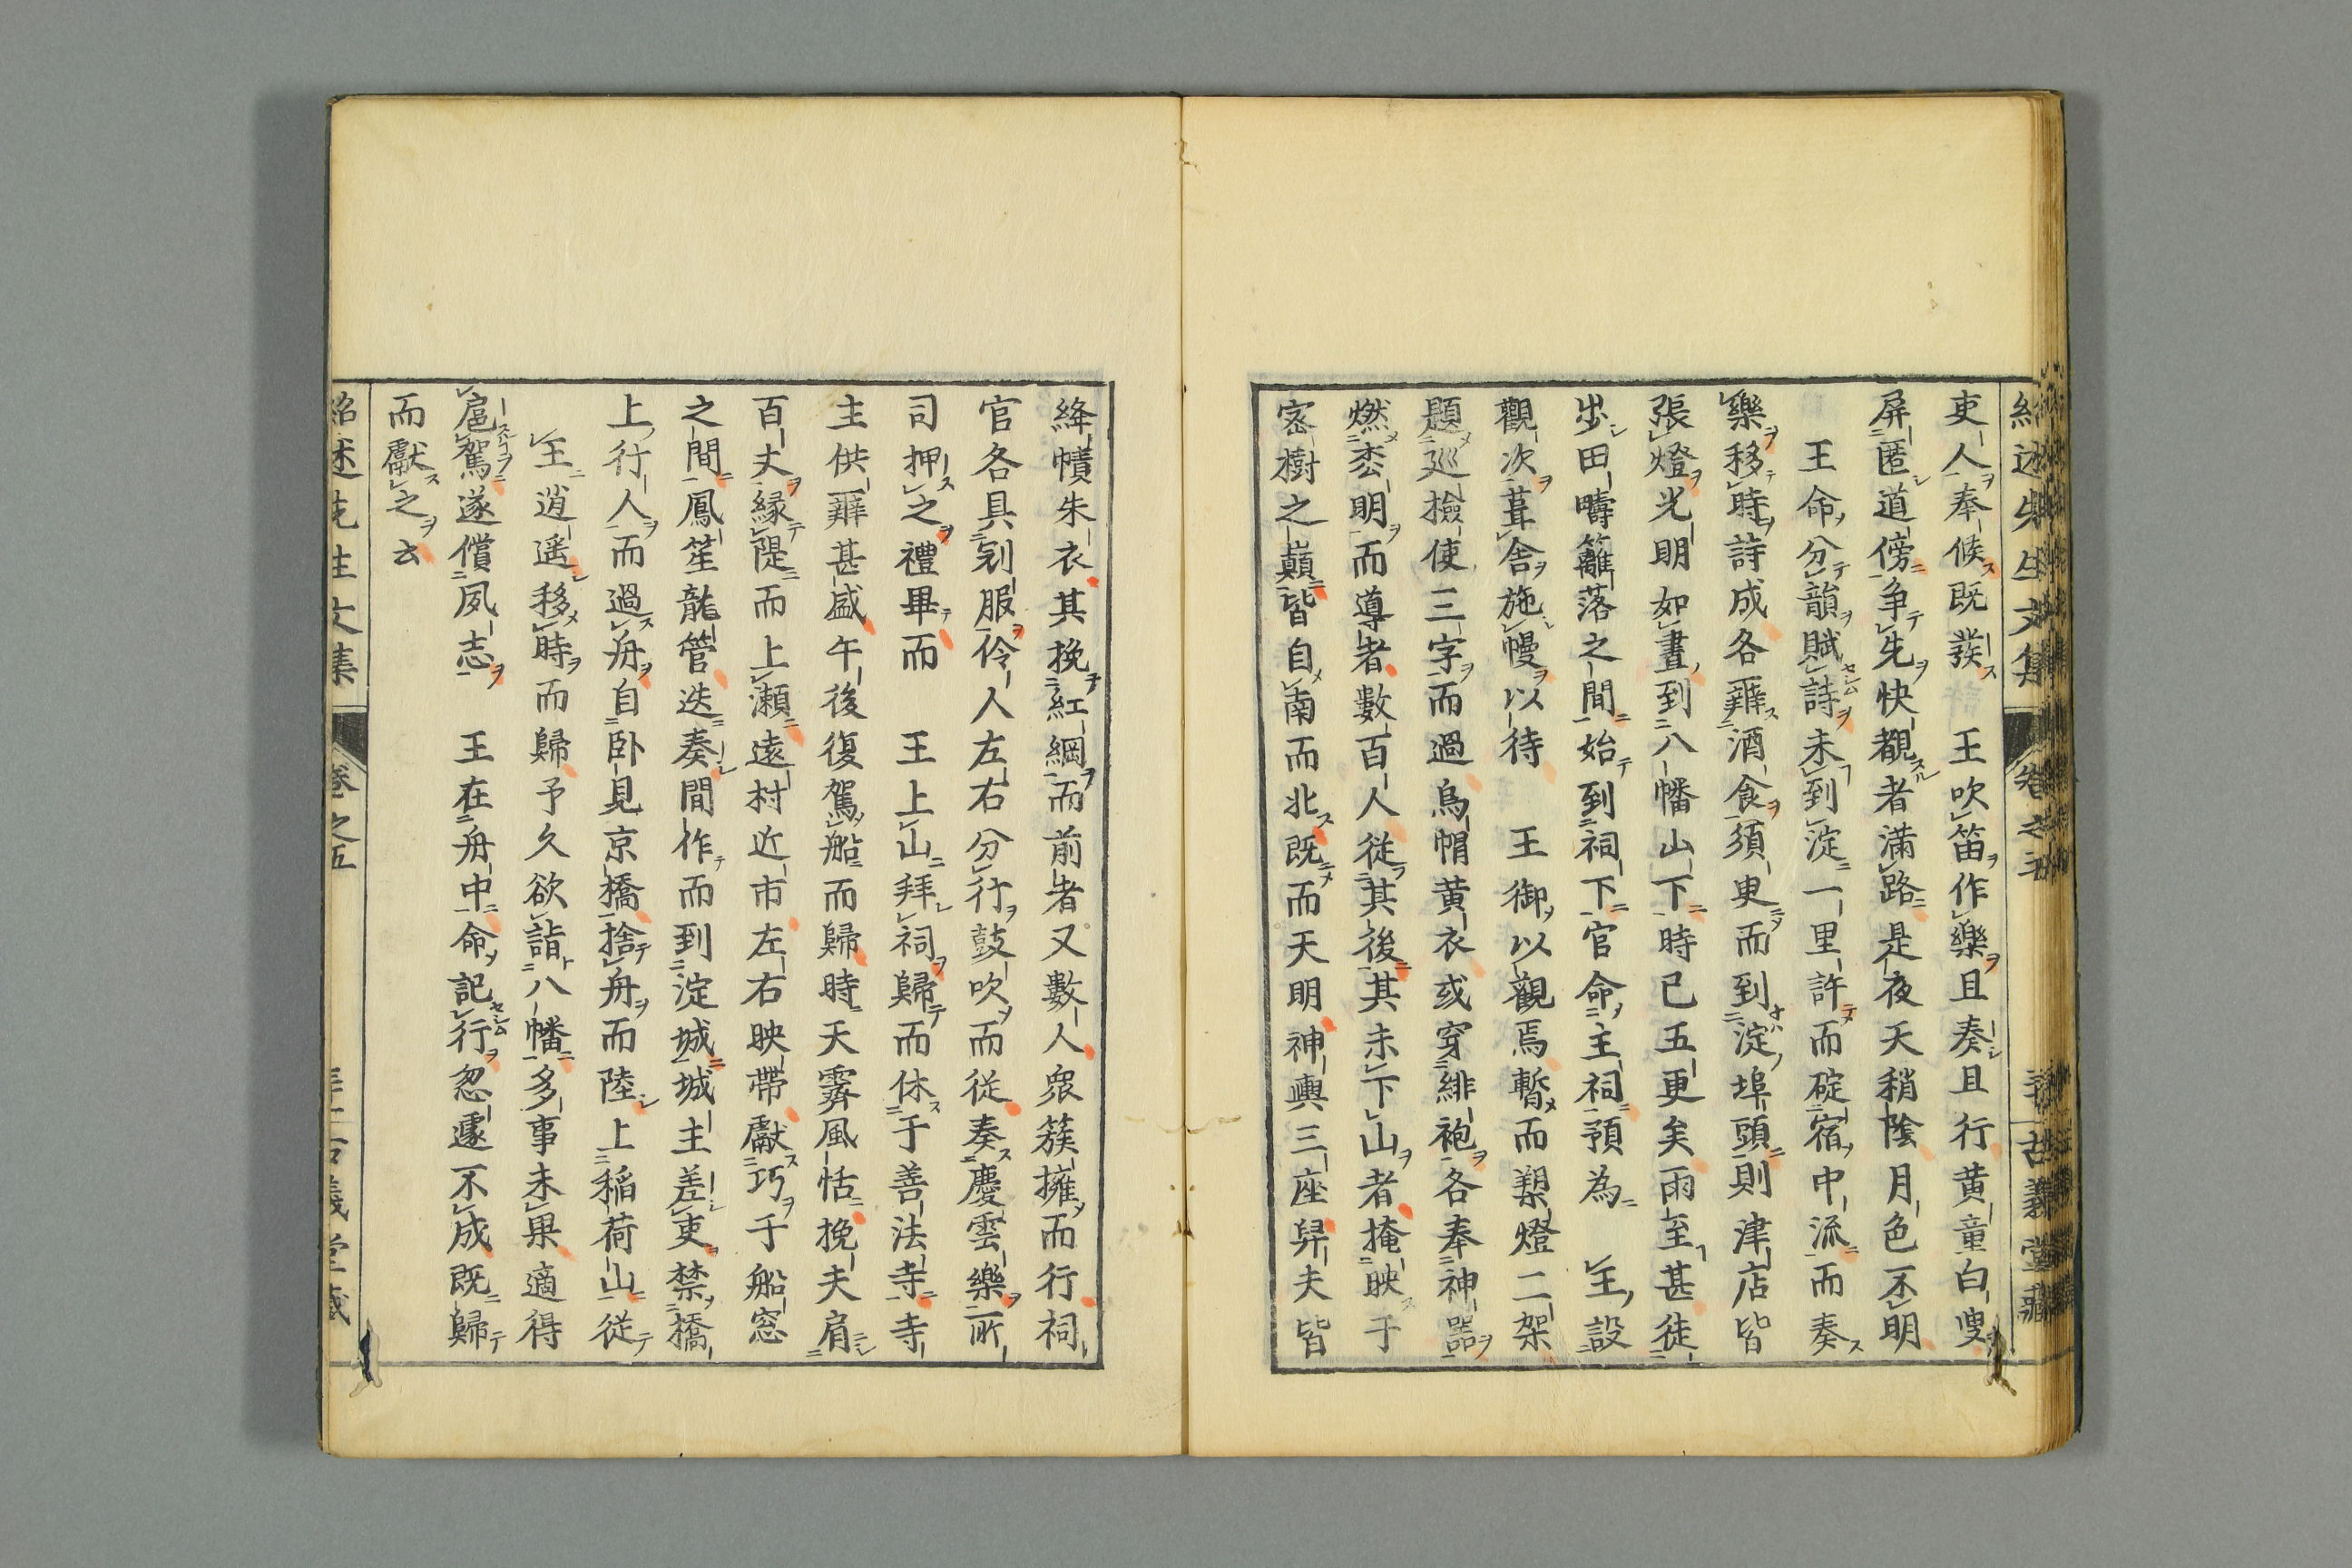 吏人奉候既發 王吹笛作樂且奏且行黄童白叟
屏匿道傍争先快覩者滿路是夜天稍陰月色不明
王命分韻賦詩未到淀一里許而碇宿中流而奏
樂移時詩成各辭酒食須臾而到淀埠頭則津店皆
張燈光明如晝到八幡山下時已五更矣雨至甚徒
步田疇籬落之間始到祠下官命主祠預為 王設
觀次葺舎施幔以待 王御以觀焉暫而製燈二架
題巡撿使三字而過烏帽黄衣或穿緋袍各奉神器
燃柰明而導者數百人従其後其未下山者掩映于
宻樹之巔皆自南而北既而天明神輿三座舁夫皆
絳幘朱衣其挽紅綱而前者又數人衆簇擁而行祠
官各具剡服伶人左右分行鼓吹而従奏慶雲樂所
司押之禮畢而 王上山拜祠歸而休于善法寺寺
主供辭甚盛午後復駕船而歸時天霽風恬挽夫肩
百丈縁隄而上瀬遠村近市左右映帶獻巧于船窓
之間鳳笙龍管迭奏間作而到淀城城主差吏禁橋
上行人而過舟自卧見京橋捨舟而陸上稲荷山従
王逍遥移時而歸予久欲詣八幡多事未果適得
扈駕遂償夙志 王在舟中命記行忽遽不成既歸
而獻之云
紹述先生文集 卷之五